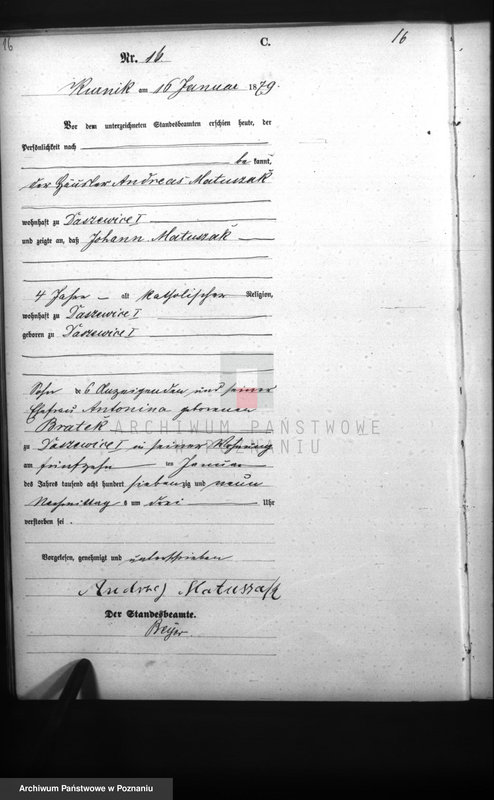 16
C.
16
Nr. 16
Kurnik am 16 Januar 1879.
Vor dem unterzeichneten Standesbeamten erschien heute, der
Persönlichkeit nach
be kannt,
der Häusler Andreas Matuszak
wohnhaft zu Daszewice I
und zeigte an, daß Johann Matuszak
4 Jahre alt katholischer Religion,
wohnhaft zu Daszewice I
geboren zu Daszewice I
Sohn des Anzeigenden und seiner
Ehefrau Antonina geborenen
Bratek
ARCHIWUM PAŃSTWOWE
W POZNANIU
zu Daszewice I in seiner Wohnung
am fünfzehn ten Januar
des Jahres tausend acht hundert siebenzig und neun
Nachmittag s um drei Uhr
verstorben sei.
Vorgelesen, genehmigt und unterschrieben
Andrzej Matuszak
Der Standesbeamte.
Beyer
Archiwum Państwowe w Poznaniu